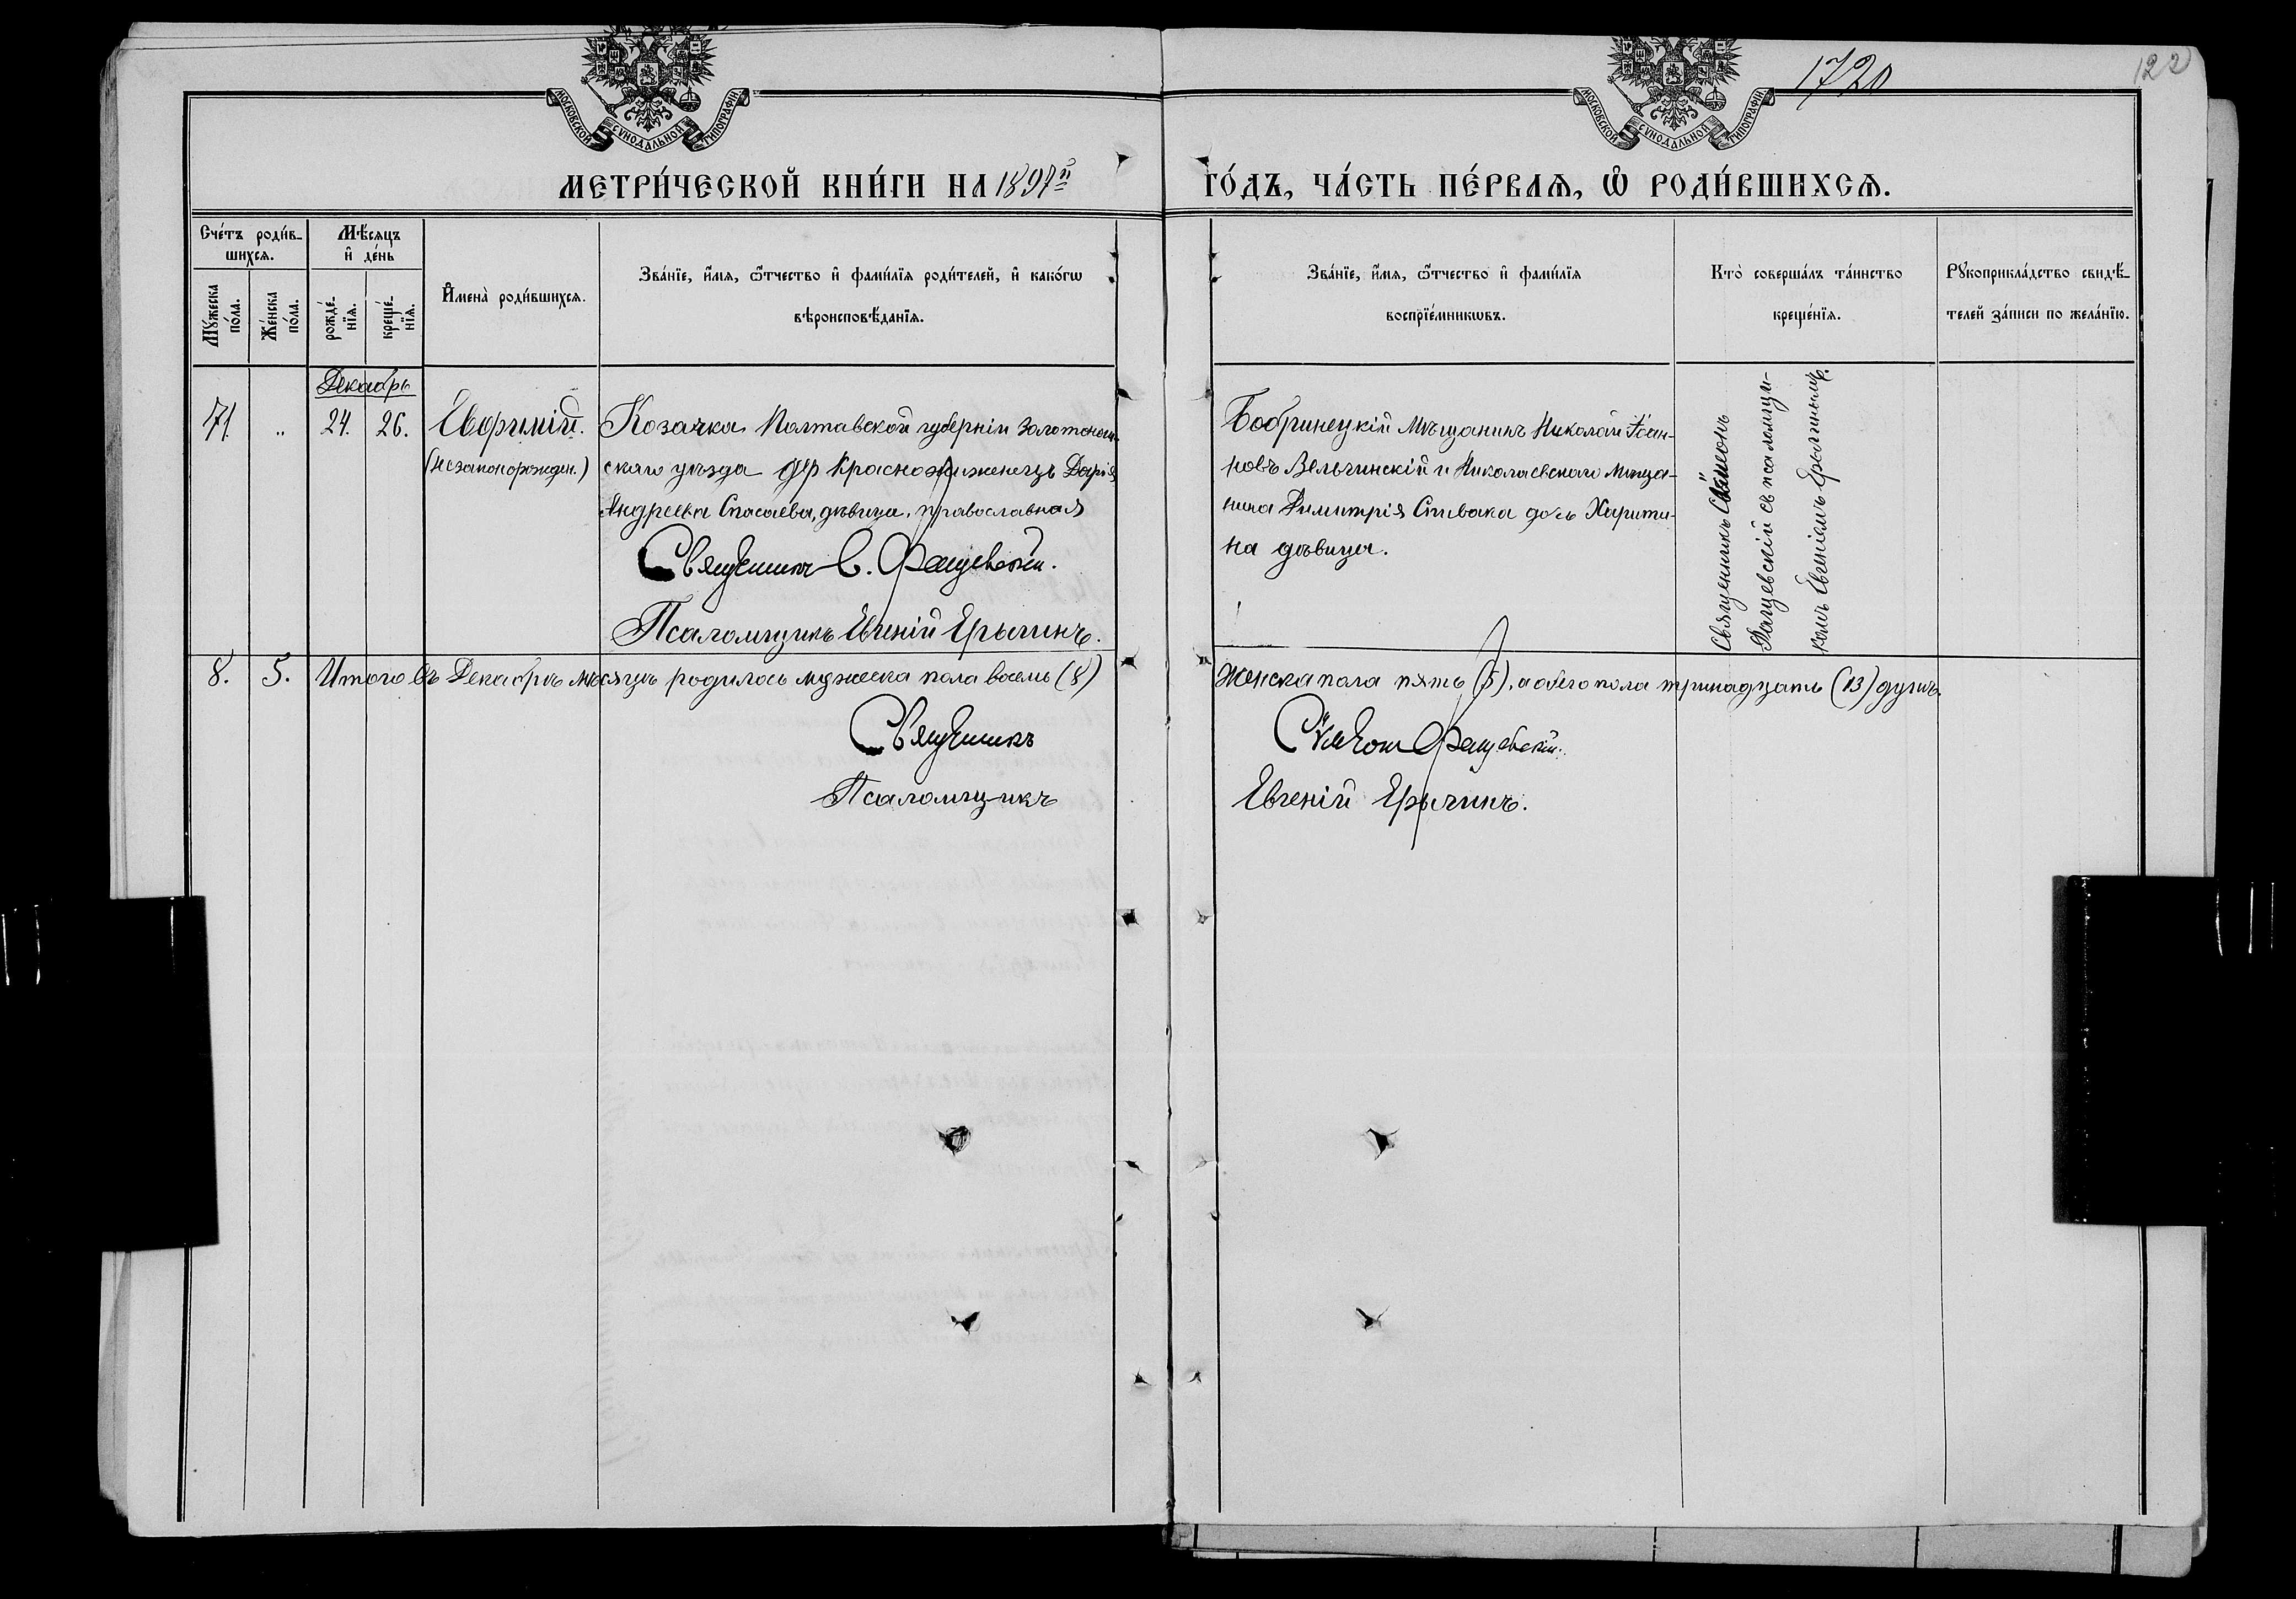 МОСКОВСКОЙ СѴНОДАЛЬНОЙ ТИПОГРАФІИ
МОСКОВСКОЙ СѴНОДАЛЬНОЙ ТИПОГРАФІИ
1720
122
МЕТРИ́ЧЕСКОЙ КНИ́ГИ НА 1897й
ГО́ДЪ, ЧА́СТЬ ПЕ́РВАѦ, Ѡ҆ РОДИ́ВШИХСѦ.
Сче́тъ роди́в-
шихсѧ.
Мѣ́сѧцъ
и҆ де́нь
Мꙋ́жеска
по́ла.
Же́нска
по́ла.
рожде́-
нїѧ.
креще́-
нїѧ.
И҆мена̀ роди́вшихсѧ.
Зва́нїе, и҆́мѧ, ѻ҆́тчество и҆ фами́лїѧ роди́телей, и҆ како́гѡ
вѣроисповѣ́данїѧ.
Зва́нїе, и҆́мѧ, ѻ҆́тчество и҆ фами́лїѧ
воспрїе́мникѡвъ.
Кто̀ соверша́лъ та́инство
креще́нїѧ.
Рꙋкоприкла́дство свидѣ́-
телей за́писи по жела́нїю.
Декабрь
71. „ 24. 26. Евфимій.
(незаконорожден.)
Козачка Полтавской губерніи Золотонош-
скаго уѣзда дер Красножиженецъ Дарія
Андреева Спасаева, дѣвица, православная
Священникъ С. Фащевскій.
Псаломщикъ Евгеній Ерыгинъ.
Бобринецкій Мѣщанинъ Николай Іоан-
новъ Вельчинскій и Николаевскаго мѣща-
нина Димитрія Спивака дочь Харити-
на дѣвица.
Священникъ Сѵмеонъ
Фащевскій съ псаломщи-
комъ Евгеніемъ Ерыгинымъ.
8. 5. Итого въ Декабрѣ мѣсяцѣ родилось мужеска пола восемь (8)
Женска пола пять (5), а обего пола тринадцать (13) душъ.
Священникъ
Сѵмеонъ Фащевскій.
Псаломщикъ
Евгеній Ерыгинъ.